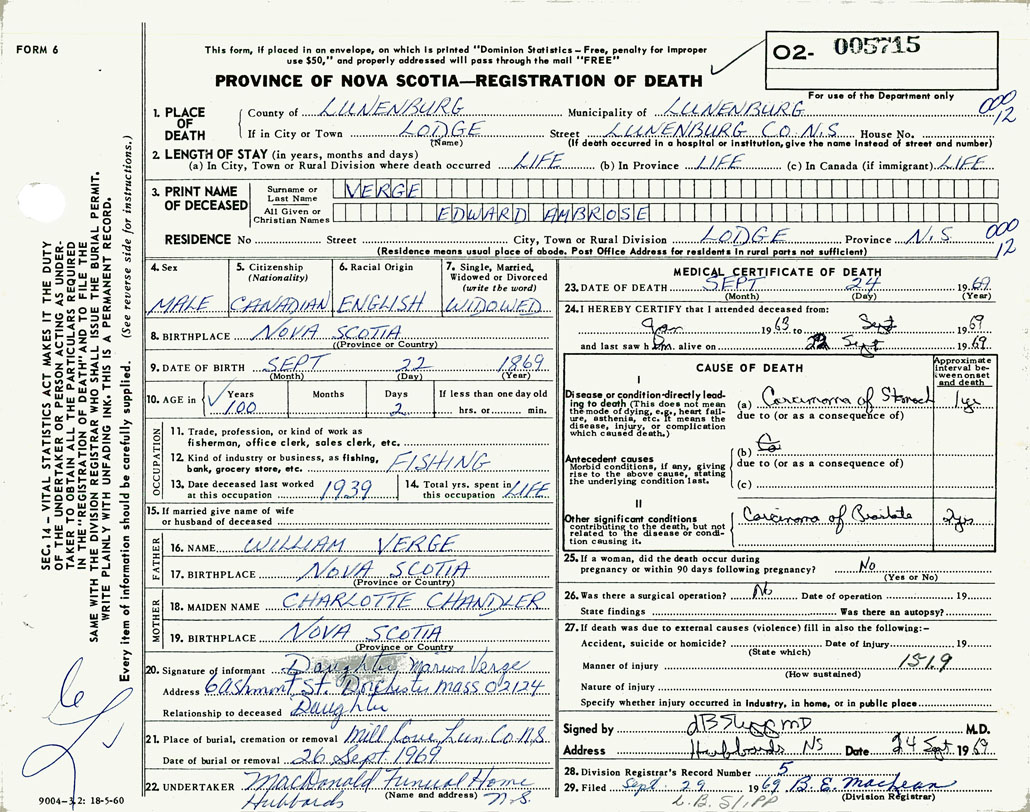 FORM 6
This form, if placed in an envelope, on which is printed "Dominion Statistics – Free, penalty for improper
use $50," and properly addressed will pass through the mail "FREE"
PROVINCE OF NOVA SCOTIA—REGISTRATION OF DEATH
02- 005715
For use of the Department only
1. PLACE OF DEATH
County of LUNENBURG Municipality of LUNENBURG
000 12
If in City or Town LODGE Street LUNENBURG CO. N.S. House No.
(Name) (If death occurred in a hospital or institution, give the name instead of street and number)
2. LENGTH OF STAY (in years, months and days)
(a) In City, Town or Rural Division where death occurred LIFE (b) In Province LIFE (c) In Canada (if immigrant) LIFE
3. PRINT NAME OF DECEASED
Surname or Last Name VERGE
All Given or Christian Names EDWARD AMBROSE
RESIDENCE No Street City, Town or Rural Division LODGE Province N.S.
000 12
(Residence means usual place of abode. Post Office Address for residents in rural parts not sufficient)
4. Sex MALE
5. Citizenship (Nationality) CANADIAN
6. Racial Origin ENGLISH
7. Single, Married, Widowed or Divorced (write the word) WIDOWED
8. BIRTHPLACE NOVA SCOTIA
(Province or Country)
9. DATE OF BIRTH SEPT 22 1869
(Month) (Day) (Year)
10. AGE in Years Months Days If less than one day old
100 2 hrs. or min.
OCCUPATION
11. Trade, profession, or kind of work as
fisherman, office clerk, sales clerk, etc.
12. Kind of industry or business, as fishing,
bank, grocery store, etc. FISHING
13. Date deceased last worked
at this occupation 1939
14. Total yrs. spent in
this occupation LIFE
15. If married give name of wife
or husband of deceased
FATHER
16. NAME WILLIAM VERGE
17. BIRTHPLACE NOVA SCOTIA
(Province or Country)
MOTHER
18. MAIDEN NAME CHARLOTTE CHANDLER
19. BIRTHPLACE NOVA SCOTIA
(Province or Country)
20. Signature of informant Daughter Marion Verge
Address 6 Ashmont St. Dorchester Mass 02124
Relationship to deceased Daughter
21. Place of burial, cremation or removal Mill Cove Lun. Co. N.S.
Date of burial or removal 26 Sept 1969
22. UNDERTAKER MacDonald Funeral Home
Hubbards (Name and address) N.S.
MEDICAL CERTIFICATE OF DEATH
23. DATE OF DEATH SEPT 24 1969
(Month) (Day) (Year)
24. I HEREBY CERTIFY that I attended deceased from:
Jan 1963 to Sept 1969
and last saw him alive on Sept 1969
CAUSE OF DEATH
Approximate interval between onset and death
I
Disease or condition directly leading to death (This does not mean the mode of dying, e.g., heart failure, asthenia, etc. It means the disease, injury, or complication which caused death.)
(a) Carcinoma of Stomach 1yr
due to (or as a consequence of)
Antecedent causes
Morbid conditions, if any, giving rise to the above cause, stating the underlying condition last.
(b)
due to (or as a consequence of)
(c)
II
Other significant conditions
contributing to the death, but not related to the disease or condition causing it.
Carcinoma of Prostate 2yrs
25. If a woman, did the death occur during
pregnancy or within 90 days following pregnancy? No
(Yes or No)
26. Was there a surgical operation? No Date of operation 19
State findings Was there an autopsy?
27. If death was due to external causes (violence) fill in also the following:–
Accident, suicide or homicide? Date of injury 19
(State which)
Manner of injury 151.9
(How sustained)
Nature of injury
Specify whether injury occurred in industry, in home, or in public place
Signed by MD M.D.
Address Hubbards NS Date 24 Sept 1969
28. Division Registrar's Record Number 5
29. Filed Sept. 29 1969 B.E. MacLean
(Division Registrar)
L.B. Slipp
SEC. 14 – VITAL STATISTICS ACT MAKES IT THE DUTY
OF THE UNDERTAKER OR PERSON ACTING AS UNDER-
TAKER TO OBTAIN ALL THE PARTICULARS REQUIRED
IN THE "REGISTRATION OF DEATH" AND TO FILE THE
SAME WITH THE DIVISION REGISTRAR WHO SHALL ISSUE THE BURIAL PERMIT.
WRITE PLAINLY WITH UNFADING INK. THIS IS A PERMANENT RECORD.
Every item of information should be carefully supplied. (See reverse side for instructions.)
9004-3.2: 18-5-60